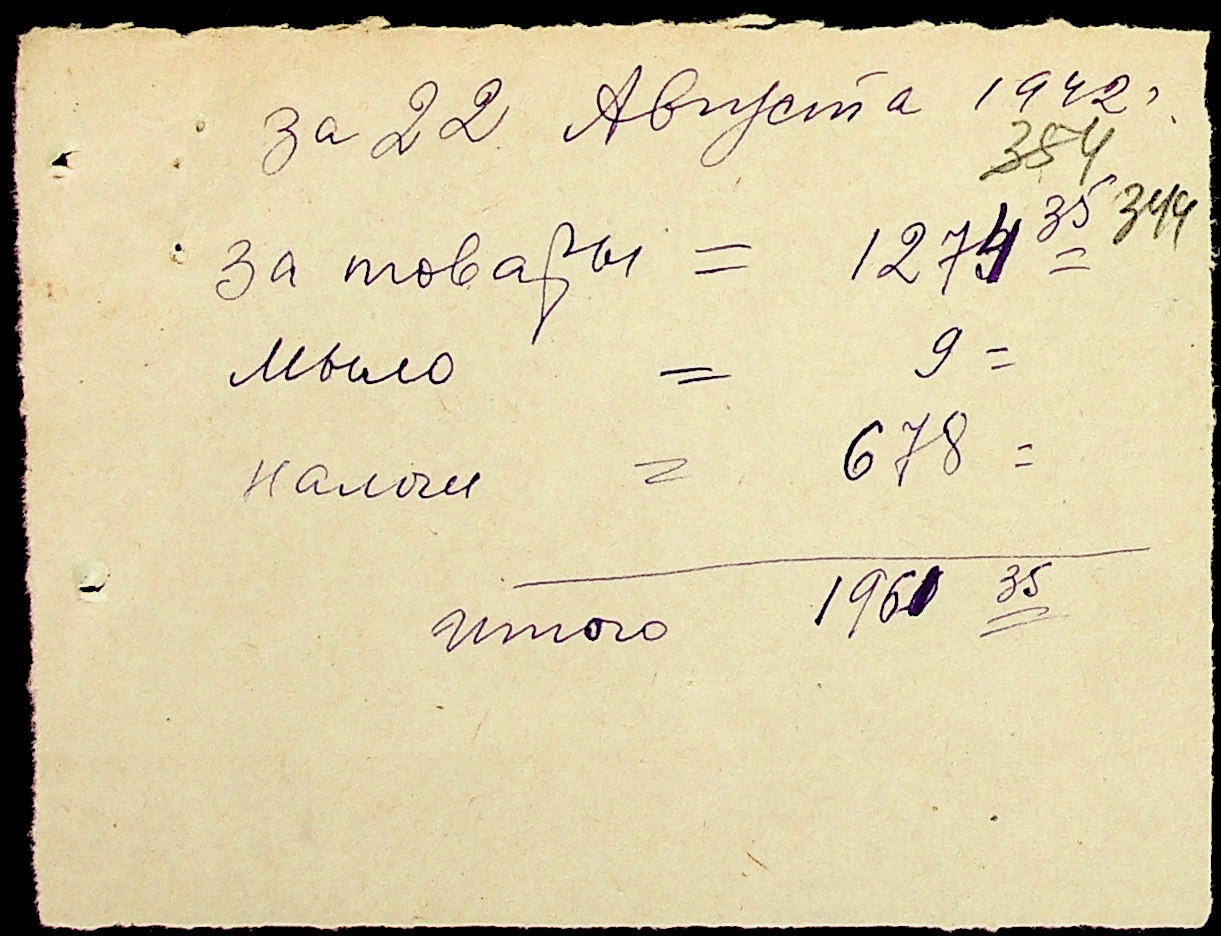 за 22 Августа 1942.
354
344
за товары = 1274 35 =
мыло = 9 =
налоги = 678 =
итого 1961 35